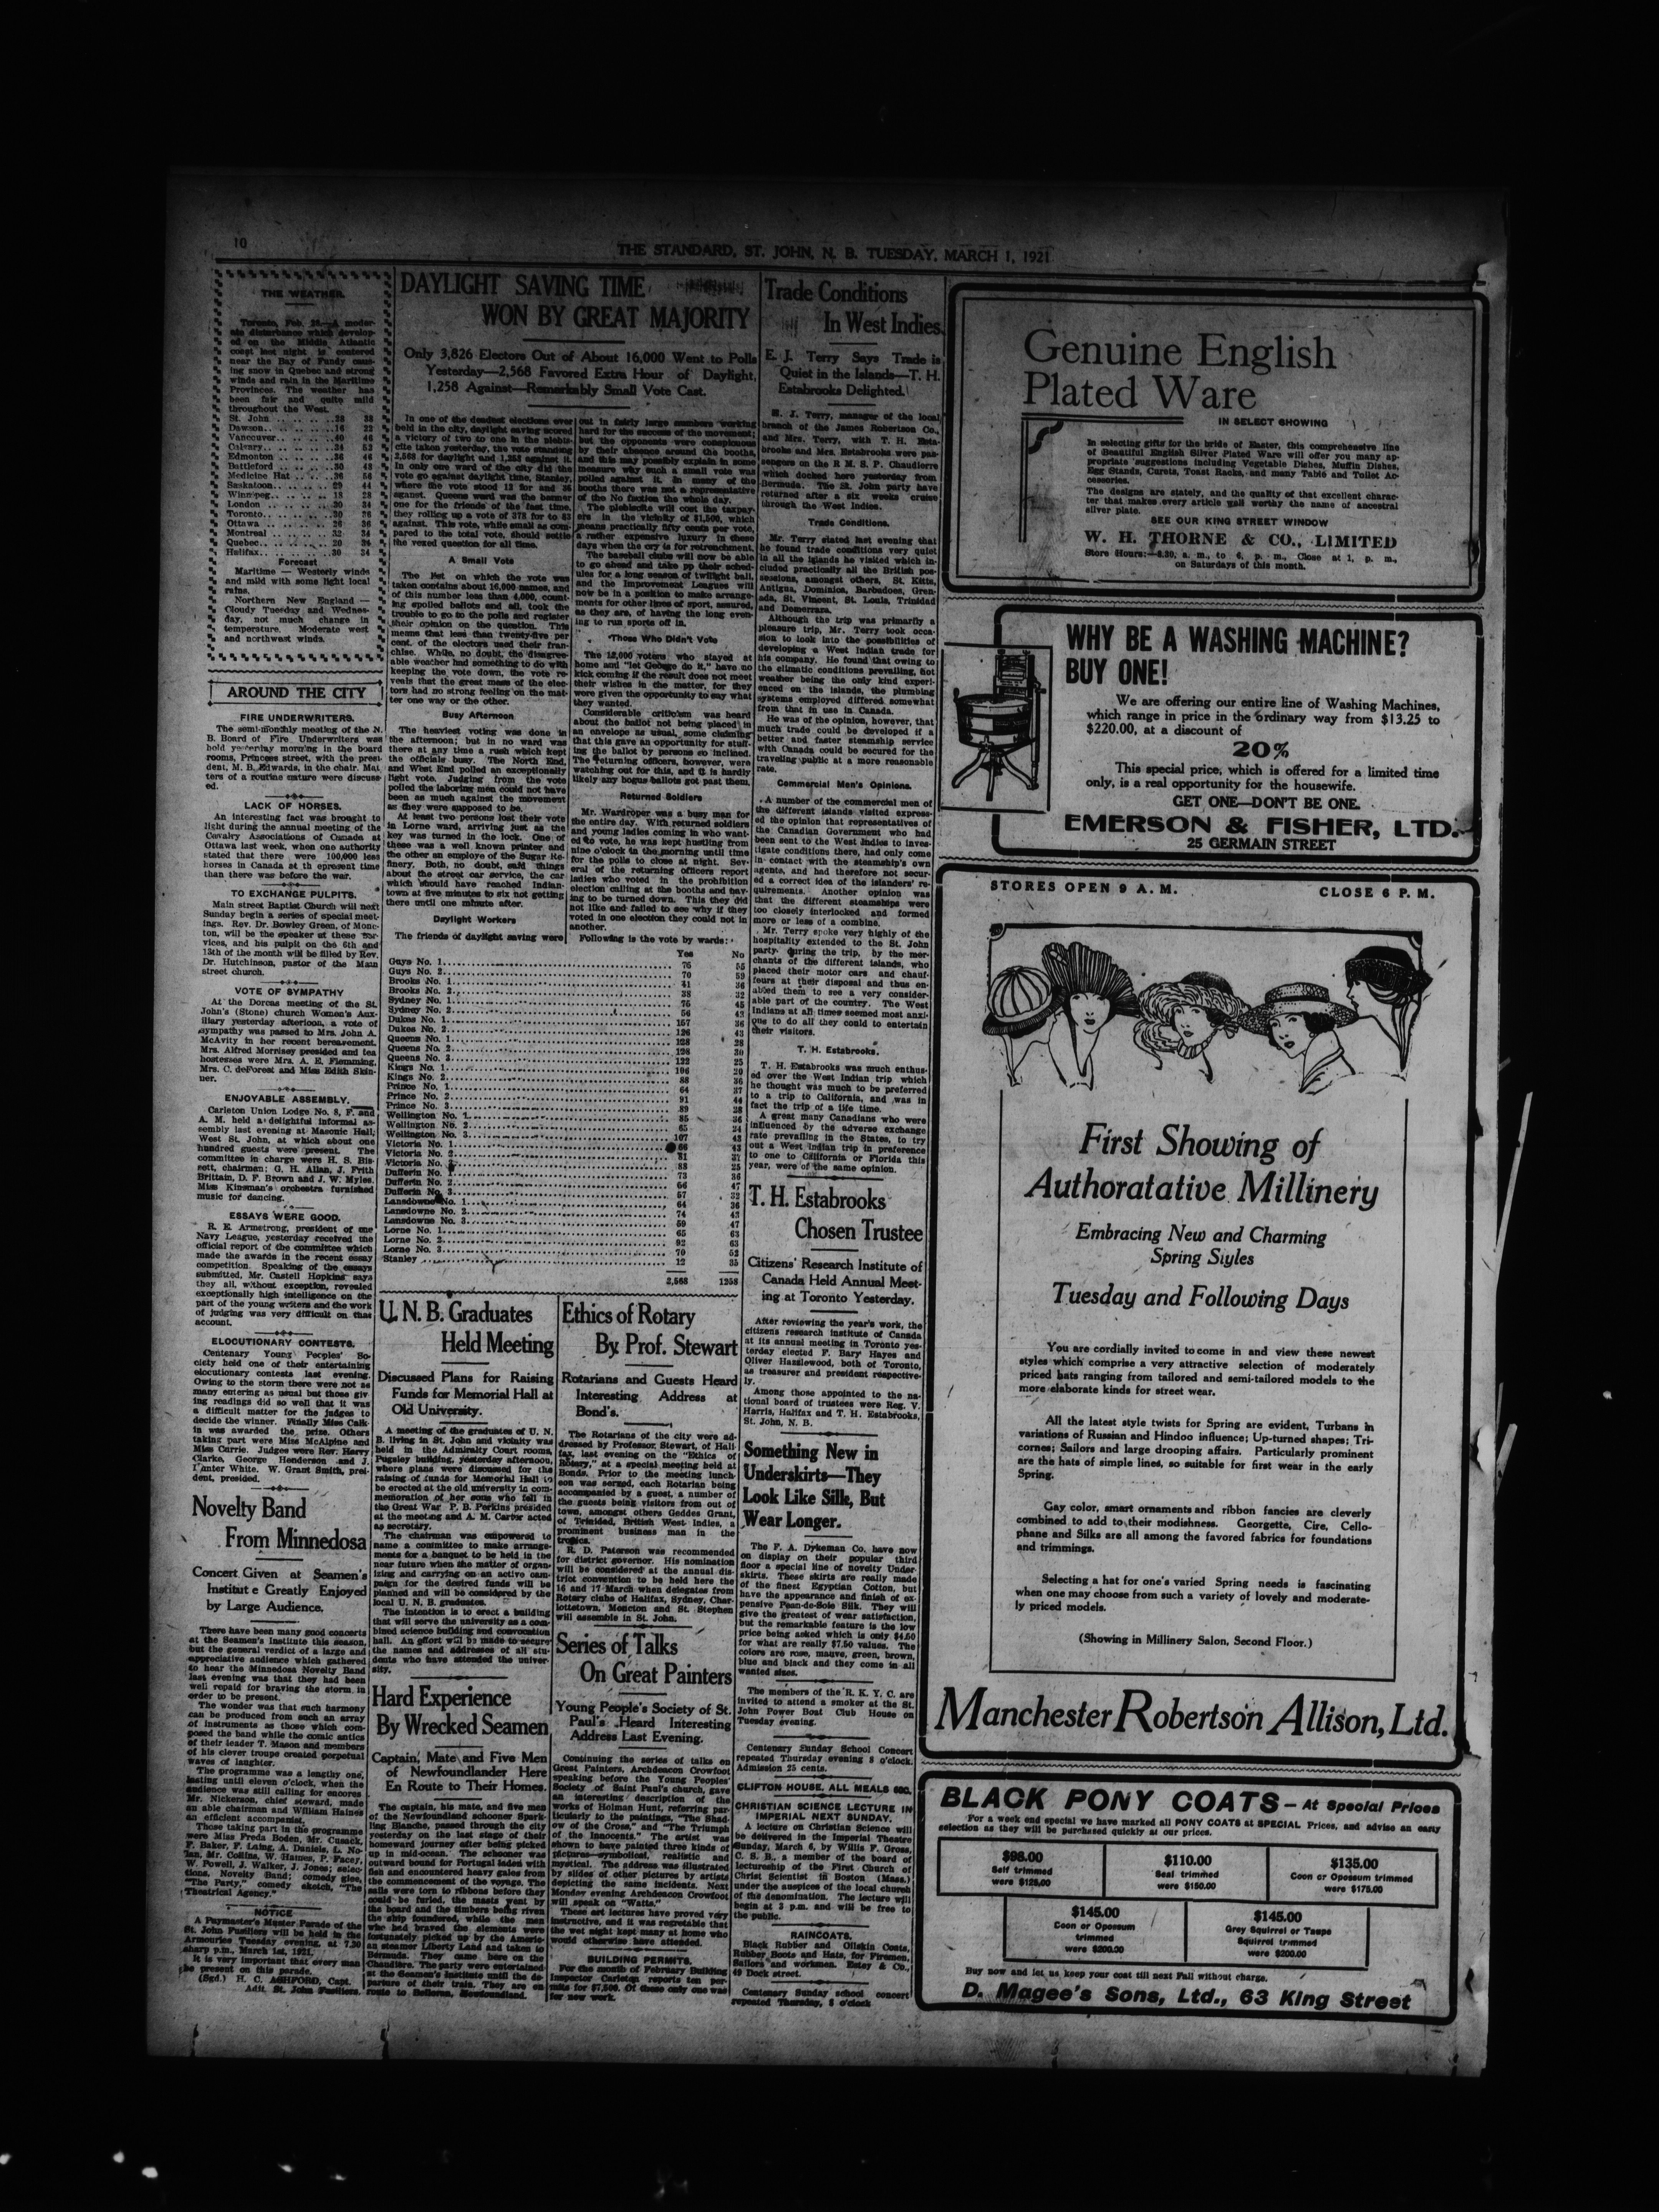 10
THE STANDARD, ST. JOHN, N. B. TUESDAY, MARCH 1, 1921
THE WEATHER.
Toronto, Feb. 28.—A moder-
ate disturbance which develop-
ed on the Middle Atlantic
coast last night is centered
near the Bay of Fundy caus-
ing snow in Quebec and strong
winds and rain in the Maritime
Provinces. The weather has
been fair and quite mild
throughout the West.
St. John 28 38
Dawson 16 22
Vancouver 40 46
Calgary 24 52
Edmonton 36 46
Battleford 30 48
Medicine Hat 36 56
Saskatoon 29 44
Winnipeg 18 28
London 30 34
Toronto 30 38
Ottawa 26 36
Montreal 32 34
Quebec 20 34
Halifax 30 34
Forecast
Maritime — Westerly winds
and mild with some light local
rains.
Northern New England —
Cloudy Tuesday and Wednes-
day, not much change in
temperature. Moderate west
and northwest winds.
AROUND THE CITY
FIRE UNDERWRITERS.
The semi-monthly meeting of the N.
B. Board of Fire Underwriters was
held yesterday morning in the board
rooms, Princess street, with the presi-
dent, M. B. Edwards, in the chair. Mat
ters of a routine nature were discuss-
ed.
LACK OF HORSES.
An interesting fact was brought to
light during the annual meeting of the
Cavalry Associations of Canada at
Ottawa last week, when one authority
stated that there were 100,000 less
horses in Canada at th epresent time
than there was before the war.
TO EXCHANGE PULPITS.
Main street Baptist Church will next
Sunday begin a series of special meet-
ings. Rev. Dr. Bowley Green, of Monc-
ton, will be the speaker at these ser-
vices, and his pulpit on the 6th and
13th of the month will be filled by Rev.
Dr. Hutchinson, pastor of the Main
street church.
VOTE OF SYMPATHY
At the Dorcas meeting of the St.
John's (Stone) church Women's Aux-
iliary yesterday afternoon, a vote of
sympathy was passed to Mrs. John A.
McAvity in her recent bereavement.
Mrs. Alfred Morrisey presided and tea
hostesses were Mrs. A. E. Flemming,
Mrs. C. deForest and Miss Edith Skin-
ner.
ENJOYABLE ASSEMBLY.
Carleton Union Lodge No. 8, F. and
A. M. held a delightful informal as-
sembly last evening at Masonic Hall,
West St. John, at which about one
hundred guests were present. The
committee in charge were H. S. Bis-
sett, chairman; G. H. Allan, J. Frith
Brittain, D. F. Brown and J. W. Myles.
Miss Kinsman's orchestra furnished
music for dancing.
ESSAYS WERE GOOD.
R. E. Armstrong, president of the
Navy League, yesterday received the
official report of the committee which
made the awards in the recent essay
competition. Speaking of the essays
submitted, Mr. Castell Hopkins says
they all, without exception, revealed
exceptionally high intelligence on the
part of the young writers and the work
of judging was very difficult on that
account.
ELOCUTIONARY CONTESTS.
Centenary Young Peoples' So-
ciety held one of their entertaining
elocutionary contests last evening.
Owing to the storm there were not as
many entering as usual but those giv-
ing readings did so well that it was
a difficult matter for the judges to
decide the winner. Finally Miss Calk-
in was awarded the prize. Others
taking part were Miss McAlpine and
Miss Currie. Judges were Rev. Harry
Clarke, George Henderson and J.
Hunter White. W. Grant Smith, presi-
dent, presided.
Novelty Band
From Minnedosa
Concert Given at Seamen's
Institut e Greatly Enjoyed
by Large Audience.
There have been many good concerts
at the Seamen's Institute this season,
but the general verdict of a large and
appreciative audience which gathered
to hear the Minnedosa Novelty Band
last evening was that they had been
well repaid for braving the storm in
order to be present.
The wonder was that such harmony
can be produced from such an array
of instruments as those which com-
posed the band while the comic antics
of their leader T. Mason and members
of his clever troupe created perpetual
waves of laughter.
The programme was a lengthy one,
lasting until eleven o'clock, when the
audience was still calling for encores
Mr. Nickerson, chief steward, made
an able chairman and William Haines
an efficient accompanist.
Those taking part in the programme
were Miss Freda Boden, Mr. Cusack,
F. Baker, F. Laing, A. Daniels, L. No-
lan, Mr. Collins, W. Haines, P. Facer,
W. Powell, J. Walker, J. Jones; selec-
tions, Novelty Band; comedy glee,
"The Party," comedy sketch, "The
Theatrical Agency."
NOTICE
A Paymaster's Muster Parade of the
St. John Fusiliers will be held in the
Armouries Tuesday evening, at 7.30
sharp p.m., March 1st, 1921.
It is very important that every man
be present on this parade.
(Sgd.) H. C. ASHFORD, Capt.
Adjt. St. John Fusiliers.
DAYLIGHT SAVING TIME
WON BY GREAT MAJORITY
Only 3,826 Electors Out of About 16,000 Went to Polls
Yesterday—2,568 Favored Extra Hour of Daylight,
1,258 Against—Remarkably Small Vote Cast.
In one of the deadest elections ever
held in the city, daylight saving scored
a victory of two to one in the plebis-
cite taken yesterday, the vote standing
2,568 for daylight and 1,258 against it.
In only one ward of the city did the
vote go against daylight time, Stanley,
where the vote stood 12 for and 35
aganst. Queens ward was the banner
one for the friends of the fast time,
they rolling up a vote of 378 for to 83
against. This vote, while small as com-
pared to the total vote, should settle
the vexed question for all time.
A Small Vote
The list on which the vote was
taken contains about 16,000 names, and
of this number less than 4,000, count-
ing spoiled ballots and all, took the
trouble to go to the polls and register
their opinion on the question. This
means that less than twenty-five per
cent. of the electors used their fran-
chise. While, no doubt, the disagree-
able weather had something to do with
keeping the vote down, the vote re-
veals that the great mass of the elec-
tors had no strong feeling on the mat-
ter one way or the other.
Busy Afternoon
The heaviest voting was done in
the afternoon; but in no ward was
there at any time a rush which kept
the officials busy. The North End,
and West End polled an exceptionally
light vote. Judging from the vote
polled the laboring men could not have
been as much against the movement
as they were supposed to be.
At least two persons lost their vote
in Lorne ward, arriving just as the
key was turned in the lock. One of
these was a well known printer and
the other an employe of the Sugar Re-
finery. Both, no doubt, said things
about the street car service, the car
which should have reached Indian-
town at five minutes to six not getting
there until one minute after.
Daylight Workers
The friends of daylight saving were
out in fairly large numbers working
hard for the success of the movement;
but the opponents were conspicuous
by their absence around the booths,
and this may possibly explain in some
measure why such a small vote was
polled against it. In many of the
booths there was not a representative
of the No faction the whole day.
The plebiscite will cost the taxpay-
ers in the vicinity of $1,500, which
means practically fifty cents per vote,
a rather expensive luxury in these
days when the cry is for retrenchment.
The baseball clubs will now be able
to go ahead and take pp their sched-
ules for a long season of twilight ball,
and the Improvement Leagues will
now be in a position to make arrange-
ments for other lines of sport, assured,
as they are, of having the long even-
ing to run sports off in.
Those Who Didn't Vote
The 12,000 voters who stayed at
home and "let George do it," have no
kick coming if the result does not meet
their wishes in the matter, for they
were given the opportunity to say what
they wanted.
Considerable criticism was heard
about the ballot not being placed in
an envelope as usual, some claiming
that this gave an opportunity for stuff-
ing the ballot by persons so inclined.
The returning officers, however, were
watching out for this, and it is hardly
likely any bogus ballots got past them.
Returned Soldiers
Mr. Wardroper was a busy man for
the entire day. With returned soldiers
and young ladies coming in who want-
ed to vote, he was kept hustling from
nine o'clock in the morning until time
for the polls to close at night. Sev-
eral of the returning officers report
ladies who voted in the prohibition
election calling at the booths and hav-
ing to be turned down. This they did
not like and failed to see why if they
voted in one election they could not in
another.
Following is the vote by wards:
Yes No
Guys No. 1 75 55
Guys No. 2 70 59
Brooks No. 1 41 36
Brooks No. 2 38 32
Sydney No. 1 75 45
Sydney No. 2 56 42
Dukes No. 1 157 36
Dukes No. 2 126 43
Queens No. 1 128 28
Queens No. 2 128 30
Queens No. 3 122 25
Kings No. 1 106 20
Kings No. 2 88 36
Prince No. 1 64 37
Prince No. 2 91 44
Prince No. 3 89 28
Wellington No. 1 85 36
Wellington No. 2 65 24
Wellington No. 3 107 42
Victoria No. 1 66 43
Victoria No. 2 81 37
Victoria No. 88 25
Dufferin No. 1 73 36
Dufferin No. 2 66 47
Dufferin No. 3 57 32
Lansdowne No. 1 64 36
Lansdowne No. 2 74 43
Lansdowne No. 3 59 47
Lorne No. 1 65 63
Lorne No. 2 92 63
Lorne No. 3 70 52
Stanley 12 35
2,568 1258
U. N. B. Graduates
Held Meeting
Discussed Plans for Raising
Funds for Memorial Hall at
Old University.
A meeting of the graduates of U. N.
B. living in St. John and vicinity was
held in the Admiralty Court rooms,
Pugsley building, yesterday afternoon,
where plans were discussed for the
raising of funds for Memorial Hall to
be erected at the old university in com-
memoration of her sons who fell in
the Great War. P. B. Perkins presided
at the meeting and A. M. Carter acted
as secretary.
The chairman was empowered to
name a committee to make arrange-
ments for a banquet to be held in the
near future when the matter of organ-
izing and carrying on an active cam-
paign for the desired funds will be
planned and will be considered by the
local U. N. B. graduates.
The intention is to erect a building
that will serve the university as a com-
bined science building and convocation
hall. An effort will be made to secure
the names and addresses of all stu-
dents who have attended the univer-
sity.
Hard Experience
By Wrecked Seamen
Captain, Mate and Five Men
of Newfoundlander Here
En Route to Their Homes.
The captain, his mate, and five men
of the Newfoundland schooner Spark-
ling Blanche, passed through the city
yesterday on the last stage of their
homeward journey after being picked
up in mid-ocean. The schooner was
outward bound for Portugal laden with
fish and encountered heavy gales from
the commencement of the voyage. The
sails were torn to ribbons before they
could be furled, the masts went by
the board and the timbers being riven
the ship foundered, while the men
who had braved the elements were
fortunately picked up by the Americ-
an steamer Liberty Land and taken to
Bermuda. They came here on the
Chaudiere. The party were entertained
at the Seamen's Institute until the de-
parture of their train. They are en
route to Belleron, Newfoundland.
Ethics of Rotary
By Prof. Stewart
Rotarians and Guests Heard
Interesting Address at
Bond's.
The Rotarians of the city were ad-
dressed by Professor, Stewart, of Hali-
fax, last evening on the "Ethics of
Rotary," at a special meeting held at
Bonds. Prior to the meeting lunch-
eon was served, each Rotarian being
accompanied by a guest, a number of
the guests being visitors from out of
town, amongst others Geddes Grant,
of Trinidad, British West Indies, a
prominent business man in the
tropics.
R. D. Paterson was recommended
for district governor. His nomination
will be considered at the annual dis-
trict convention to be held here the
16 and 17 March when delegates from
Rotary clubs of Halifax, Sydney, Char-
lottetown, Moncton and St. Stephen
will assemble in St. John.
Series of Talks
On Great Painters
Young People's Society of St.
Paul's Heard Interesting
Address Last Evening.
Continuing the series of talks on
Great Painters, Archdeacon Crowfoot
speaking before the Young Peoples'
Society of Saint Paul's church, gave
an interesting description of the
works of Holman Hunt, referring par-
ticularly to the paintings, "The Shad-
ow of the Cross," and "The Triumph
of the Innocents." The artist was
shown to have painted three kinds of
pictures—symbolical, realistic and
mystical. The address was illustrated
by slides of other pictures by artists
depicting the same incidents. Next
Monday evening Archdeacon Crowfoot
will speak on "Watts."
These art lectures have proved very
instructive, and it was regretable that
the wet night kept many at home who
would otherwise have attended.
BUILDING PERMITS.
For the month of February Building
Inspector Carleton reports ten per-
mits for $7,500. Of these only one was
for new work.
Trade Conditions
In West Indies.
E. J. Terry Says Trade is
Quiet in the Islands—T. H.
Estabrooks Delighted.
E. J. Terry, manager of the local
branch of the James Robertson Co.,
and Mrs. Terry, with T. H. Esta-
brooks and Mrs. Estabrooks were pas-
sengers on the R M. S. P. Chaudiere
which docked here yesterday from
Bermuda. The St. John party have
returned after a six weeks cruise
through the West Indies.
Trade Conditions.
Mr. Terry stated last evening that
he found trade conditions very quiet
in all the islands he visited which in-
cluded practically all the British pos-
sessions, amongst others, St. Kitts,
Antigua, Dominica, Barbadoes, Gren-
ada, St. Vincent, St. Louis, Trinidad
and Demerrara.
Although the trip was primarily a
pleasure trip, Mr. Terry took occa-
sion to look into the possibilities of
developing a West Indian trade for
his company. He found that owing to
the climatic conditions prevailing, hot
weather being the only kind experi-
enced on the islands, the plumbing
systems employed differed somewhat
from that in use in Canada.
He was of the opinion, however, that
much trade could be developed if a
better and faster steamship service
with Canada could be secured for the
traveling public at a more reasonable
rate.
Commercial Men's Opinions.
A number of the commercial men of
the different islands visited express-
ed the opinion that representatives of
the Canadian Government who had
been sent to the West Indies to inves-
tigate conditions there, had only come
in contact with the steamship's own
agents, and had therefore not secur-
ed a correct idea of the islanders' re-
quirements. Another opinion was
that the different steamships were
too closely interlocked and formed
more or less of a combine.
Mr. Terry spoke very highly of the
hospitality extended to the St. John
party during the trip, by the mer-
chants of the different islands, who
placed their motor cars and chauf-
feurs at their disposal and thus en-
abled them to see a very consider-
able part of the country. The West
Indians at all times seemed most anxi-
ous to do all they could to entertain
their visitors.
T. H. Estabrooks.
T. H. Estabrooks was much enthus-
ed over the West Indian trip which
he thought was much to be preferred
to a trip to California, and was in
fact the trip of a life time.
A great many Canadians who were
influenced by the adverse exchange
rate prevailing in the States, to try
out a West Indian trip in preference
to one to California or Florida this
year, were of the same opinion.
T. H. Estabrooks
Chosen Trustee
Citizens' Research Institute of
Canada Held Annual Meet-
ing at Toronto Yesterday.
After reviewing the year's work, the
citizens research institute of Canada
at its annual meeting in Toronto yes-
terday elected F. Bary Hayes and
Oliver Hazzlewood, both of Toronto,
as treasurer and president respective-
ly.
Among those appointed to the na-
tional board of trustees were Reg. V.
Harris, Halifax and T. H. Estabrooks,
St. John, N. B.
Something New in
Underskirts—They
Look Like Silk, But
Wear Longer.
The F. A. Dykeman Co. have now
on display on their popular third
floor a special line of novelty Under-
skirts. These skirts are really made
of the finest Egyptian Cotton, but
have the appearance and finish of ex-
pensive Pean-de-Soie Silk. They will
give the greatest of wear satisfaction,
but the remarkable feature is the low
price being asked which is only $4.50
for what are really $7.50 values. The
colors are rose, mauve, green, brown,
blue and black and they come in all
wanted sizes.
The members of the R. K. Y. C. are
invited to attend a smoker at the St.
John Power Boat Club House on
Tuesday evening.
Centenary Sunday School Concert
repeated Thursday evening 8 o'clock.
Admission 25 cents.
CLIFTON HOUSE, ALL MEALS 60C.
CHRISTIAN SCIENCE LECTURE IN
IMPERIAL NEXT SUNDAY.
A lecture on Christian Science will
be delivered in the Imperial Theatre
Sunday, March 6, by Willis F. Gross,
C. S. B., a member of the board of
lectureship of the First Church of
Christ Scientist in Boston (Mass.)
under the auspices of the local church
of the denomination. The lecture will
begin at 3 p.m. and will be free to
the public.
RAINCOATS.
Black Rubber and Oilskin Coats,
Rubber Boots and Hats, for Firemen,
Sailors and workmen. Estey & Co.,
49 Dock street.
Centenary Sunday school concert
repeated Thursday, 8 o'clock
Genuine English
Plated Ware
IN SELECT SHOWING
In selecting gifts for the bride of Easter, this comprehensive line
of Beautiful English Silver Plated Ware will offer you many ap-
propriate suggestions including Vegetable Dishes, Muffin Dishes,
Egg Stands, Carets, Toast Racks, and many Table and Toilet Ac-
cessories.
The designs are stately, and the quality of that excellent charac-
ter that makes every article well worthy the name of ancestral
silver plate.
SEE OUR KING STREET WINDOW
W. H. THORNE & CO., LIMITED
Store Hours:—8.30, a. m., to 6, p. m., Close at 1, p. m.,
on Saturdays of this month.
WHY BE A WASHING MACHINE?
BUY ONE!
We are offering our entire line of Washing Machines,
which range in price in the ordinary way from $13.25 to
$220.00, at a discount of
20%
This special price, which is offered for a limited time
only, is a real opportunity for the housewife.
GET ONE—DON'T BE ONE.
EMERSON & FISHER, LTD.
25 GERMAIN STREET
STORES OPEN 9 A. M. CLOSE 6 P. M.
First Showing of
Authoratative Millinery
Embracing New and Charming
Spring Styles
Tuesday and Following Days
You are cordially invited to come in and view these newest
styles which comprise a very attractive selection of moderately
priced hats ranging from tailored and semi-tailored models to the
more elaborate kinds for street wear.
All the latest style twists for Spring are evident, Turbans in
variations of Russian and Hindoo influence; Up-turned shapes; Tri-
cornes; Sailors and large drooping affairs. Particularly prominent
are the hats of simple lines, so suitable for first wear in the early
Spring.
Gay color, smart ornaments and ribbon fancies are cleverly
combined to add to their modishness. Georgette, Cire, Cello-
phane and Silks are all among the favored fabrics for foundations
and trimmings.
Selecting a hat for one's varied Spring needs is fascinating
when one may choose from such a variety of lovely and moderate-
ly priced models.
(Showing in Millinery Salon, Second Floor.)
Manchester Robertson Allison, Ltd.
BLACK PONY COATS—At Special Prices
For a week end special we have marked all PONY COATS at SPECIAL Prices, and advise an early
selection as they will be purchased quickly at our prices.
$98.00
Self trimmed
were $125.00
$110.00
Seal trimmed
were $150.00
$135.00
Coon or Opossum trimmed
were $175.00
$145.00
Coon or Opossum
trimmed
were $200.00
$145.00
Grey Squirrel or Taupe
Squirrel trimmed
were $200.00
Buy now and let us keep your coat till next Fall without charge.
D. Magee's Sons, Ltd., 63 King Street